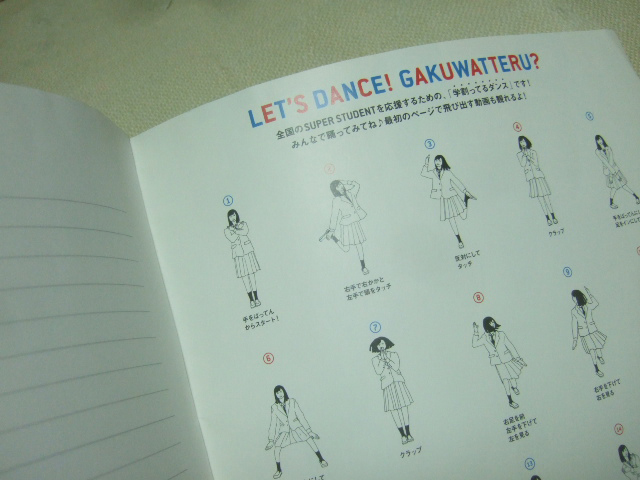 LET'S DANCE! GAKUWATTERU?
全国のSUPER STUDENTを応援するための、「学割ってるダンス」です!
みんなで踊ってみてね♪最初のページで飛び出す動画も撮れるよ!
1
2
3
4
5
手をばってん
からスタート!
右手で右かかと
左手で頭をタッチ
反対にして
タッチ
クラップ
手をばってんに
足をインにして
6
7
8
9
クラップ
右足を前
左手を下げて
左を見る
右手を下げて
右を見る
13
14